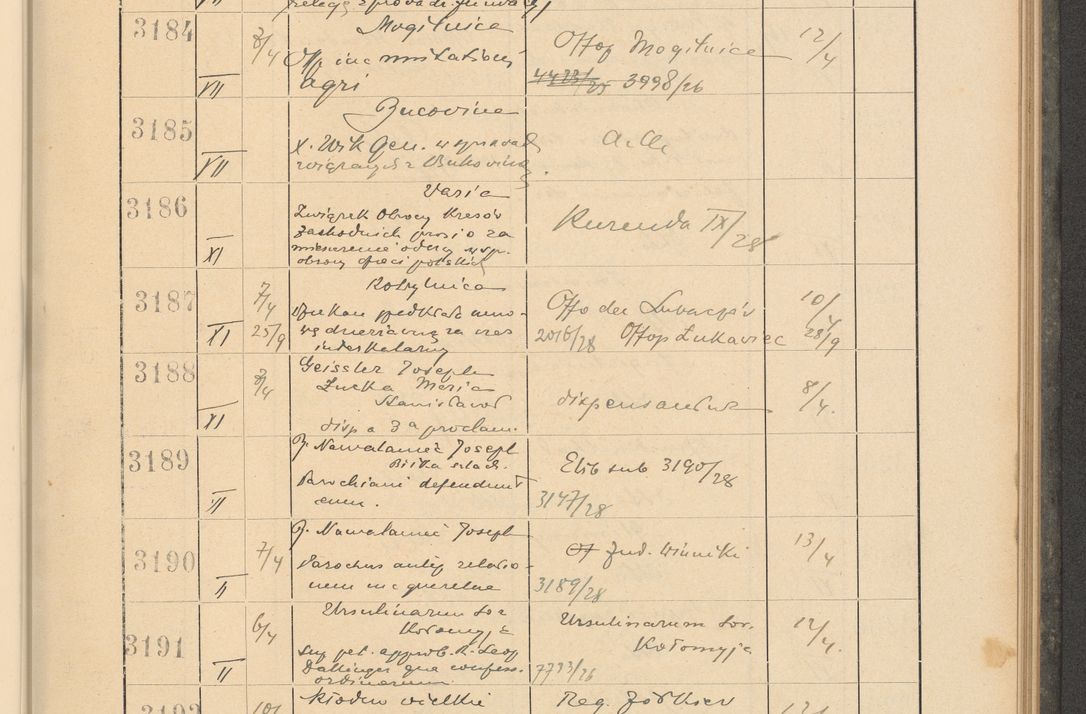 3184
VII
3/4
Mogilnica
Off. inc
agri
Off op Mogilnica
4423/25 3998/26
12/4
3185
VII
Bucovina
X. Wik Gen. w sprawach
związanych z Bukowiną.
a. a.
3186
XI
Varia
Związek Obrony Kresów
Zachodnich prosi o za
mieszczenie odezwy w spr.
obrony dzieci polskich
Kurenda IX/28
3187
XI
7/4
25/9
Kobylnica
Dziekan przedkłada umo-
wę dzierżawną za czas
interkalarny
Offo dec Lubaczów
2016/28 Offop Łukawiec
10/4
28/9
3188
XI
3/4
Geissler Joseph
Łucka Maria
Stanisławów
disp a 3ª proclam.
dispensantur
8/4.
3189
II
P. Nawalaniec Joseph
Biłka szlach.
Parochiani defendunt
eum.
Elib sub 3190/28
3147/28
3190
II
7/4
P. Nawalaniec Joseph
Parochus antig relatio-
nem inc querelae
Of Jud. Winniki
3189/28
13/4
3191
II
6/4
Ursulinarum Sor
Kołomyja
Sup. pet. approb. R. Leop
Dallinger qua confess.
ordinarium.
Ursulinarum Sor.
Kołomyja
7733/26
12/4.
3192
10/
Kłodno wielkie
Reg. Żółkiew
12/